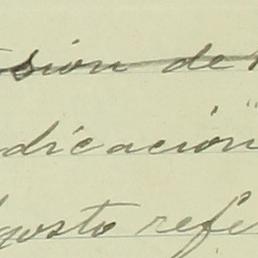 sión de
dicación
gosto refe